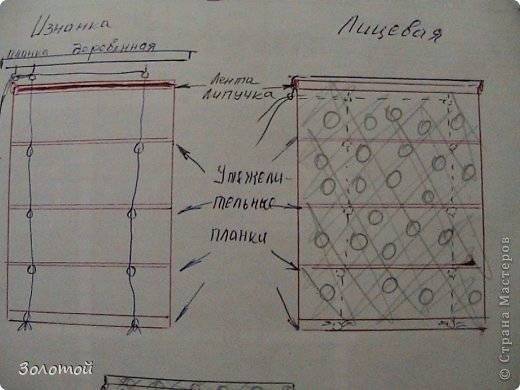 Изнанка
Лицевая
планка деревянная
Лента
липучка
Утяжели-
тельные
планки
Золотой
© Страна Мастеров